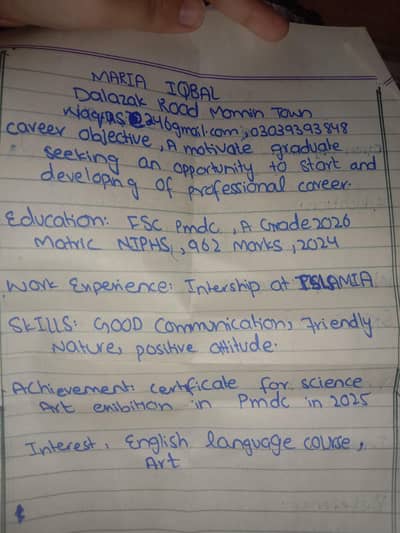 MARIA IQBAL
Dalazak Road Momin Town
246gmail.com, 03039393848
career objective, A motivate graduate
seeking an opportunity to start and
developing of professional career.
Education: FSC Pmdc, A Grade 2026
Matric NIPHS, 962 Marks, 2024
Work Experience: Intership at ISLAMIA
SKILLS: GOOD Communication, Friendly
Nature, positive attitude.
Achievement: certficate for science
Art exibition in Pmdc in 2025
Interest, English language course,
Art